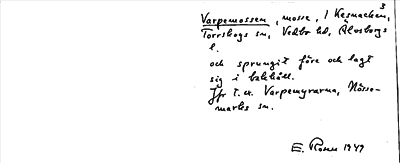 3
Varpemossen, mosse, i Kesnacken,
Torrskogs sn, Vedbo hd, Älvsborgs
l.
och sprungit före och lagt
sig i bakhåll.
Jfr t.ex. Varpemyrarna, Nösse-
marks sn.
E. Rosen 1949